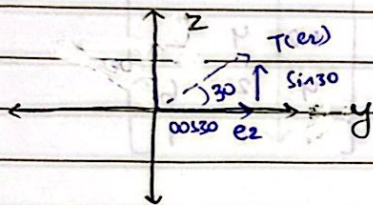 z
T(e2)
30
sin30
y
cos30 e2